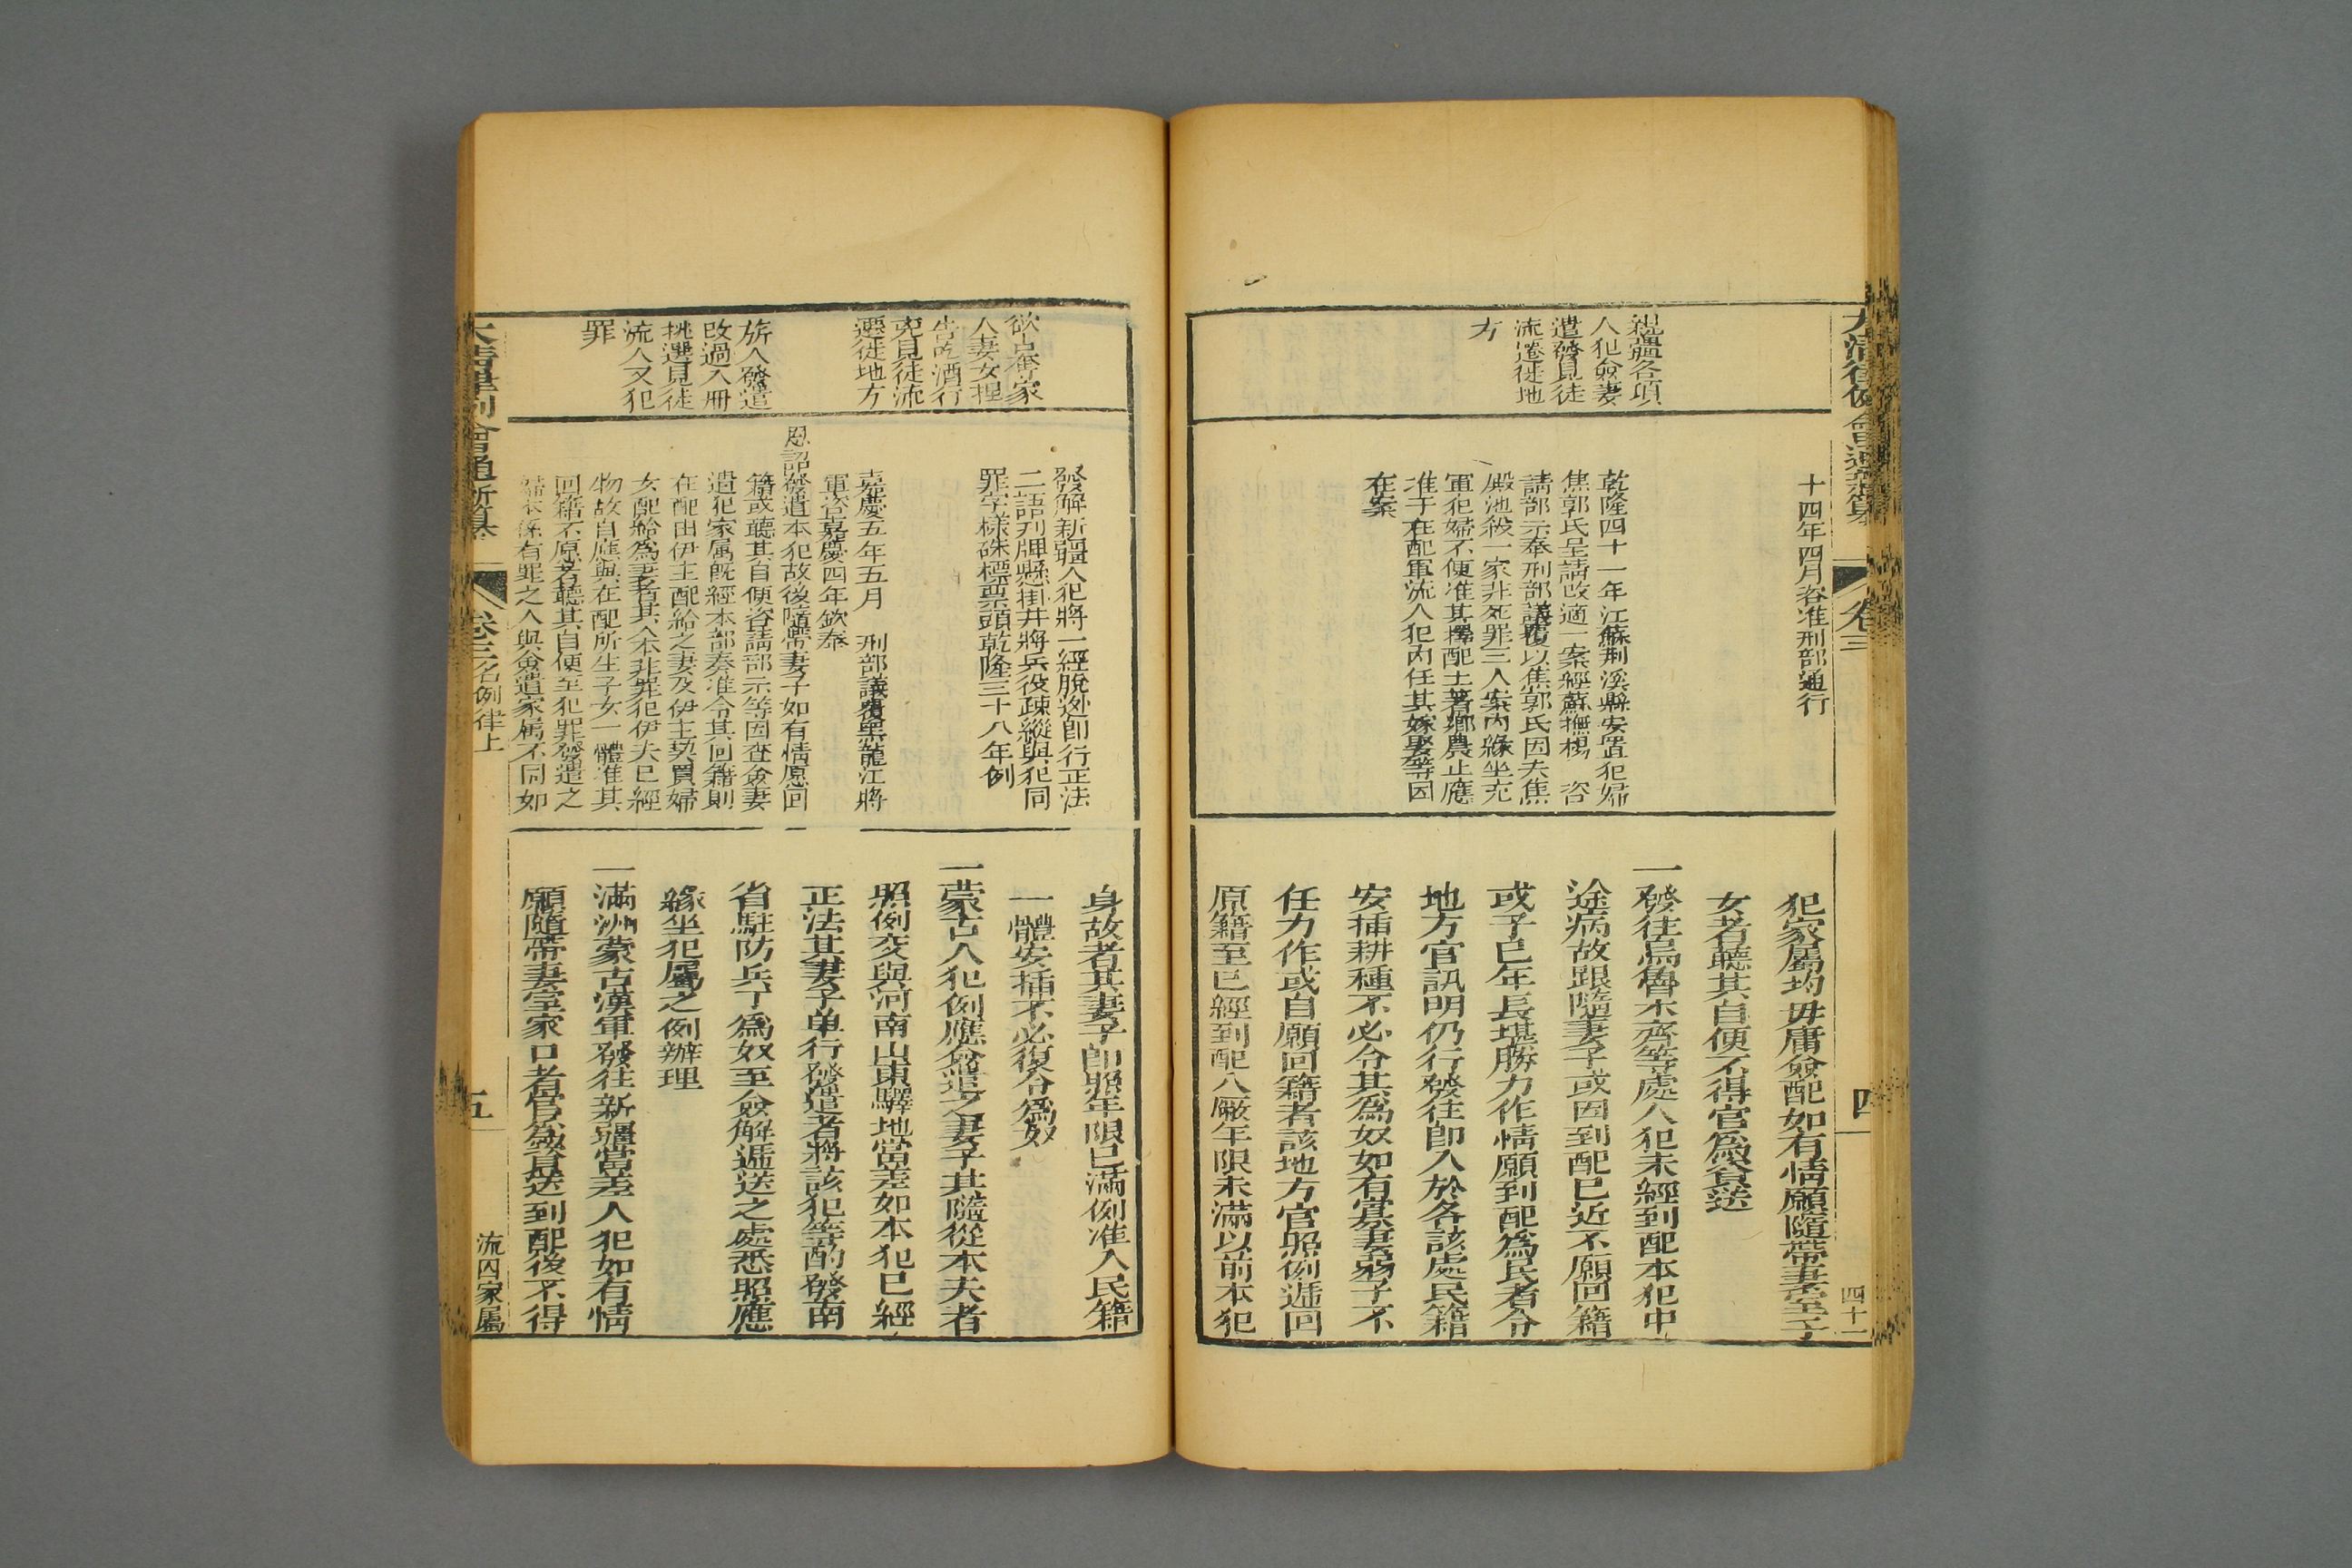 大清律例會通新纂
卷三
四
四十一
親屬各項
人犯僉妻
遣發見徒
流遷徙地
方
十四年四月咨准刑部通行
乾隆四十一年江蘇荆溪縣安置犯婦
焦郭氏呈請改適一案經蘇撫楊 咨
請部示奉刑部議覆以焦郭氏因夫焦
殿池殺一家非死罪三人案內緣坐充
軍犯婦不便准其擇配土著鄉農止應
准于在配軍流人犯內任其嫁娶等因
在案
犯家屬均毋庸僉配如有情願隨帶妻室子
女者聽其自便不得官爲資送
一發往烏魯木齊等處人犯未經到配本犯中
途病故跟隨妻子或因到配已近不願回籍
或子已年長堪勝力作情願到配爲民者令
地方官訊明仍行發往卽入於各該處民籍
安插耕種不必令其爲奴如有寡妻弱子不
任力作或自願回籍者該地方官照例遞回
原籍至已經到配入廠年限未滿以前本犯
欲占奪家
人妻女捏
告吃酒行
兇見徒流
遷徙地方
旂人發遣
改過入冊
挑選見徒
流人又犯
罪
發解新疆人犯將一經脫逃卽行正法
二語刋牌懸掛幷將兵役疎縱與犯同
罪字樣硃標票頭乾隆三十八年例
嘉慶五年五月 刑部議覆黑龍江將
軍咨嘉慶四年欽奉
恩詔發遣本犯故後隨帶妻子如有情愿回
籍或聽其自便咨請部示等因查僉妻
遣犯家属旣經本部奏准令其回籍則
在配由伊主配給之妻及伊主契買婦
女配給爲妻者其人本非罪犯伊夫已經
物故自應與在配所生子女一體准其
回籍不愿者聽其自便至犯罪發遣之
婦本係有罪之人與僉遣家属不同如
身故者其妻子卽照年限已滿例准入民籍
一體安插不必復令爲奴
一蒙古人犯例應僉遣之妻子其隨從本夫者
照例交與河南山東驛地當差如本犯已經
正法其妻子单行發遣者將該犯等酌發南
省駐防兵丁爲奴至僉解遞送之處悉照應
緣坐犯屬之例辦理
一滿洲蒙古漢軍發往新疆當差人犯如有情
願隨帶妻室家口者官爲資送到配後不得
大清律例會通新纂
卷三名例律上
五
流囚家屬